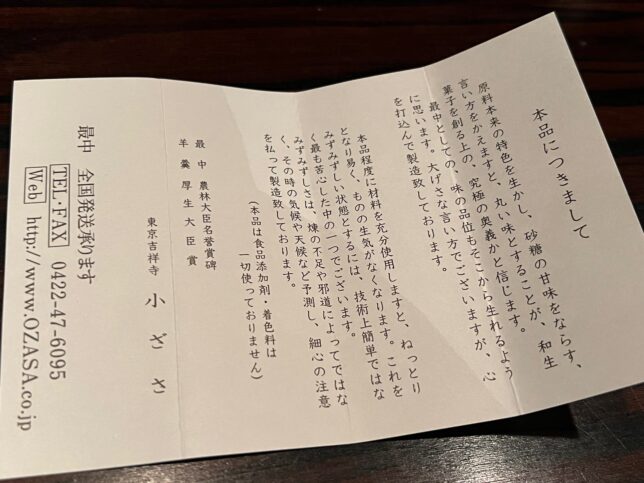 本品につきまして
原料本来の特色を生かし、砂糖の甘味をならす、
言い方をかえますと、丸い味とすることが、和生
菓子を創る上の、究極の奥義かと信じます。
最中としての、味の品位もそこから生れるよう
に思います。大げさな言い方でございますが、心
を打込んで製造致しております。
本品程度に材料を充分使用しますと、ねっとり
となり易く、ものの生気がなくなります。これを
みずみずしい状態とするには、技術上簡単ではな
く最も苦心した中の一つでございます。
みずみずしさは、煉の不足や邪道によってではな
く、その時の気候や天候など予測し、細心の注意
を払って製造致しております。
(本品は食品添加剤・着色料は
一切使っておりません)
最中 農林大臣名誉賞碑
羊羹厚生大臣賞
東京吉祥寺 小ざさ
最中 全国発送承ります
TEL・FAX 0422-47-6095
Web http://www.OZASA.co.jp